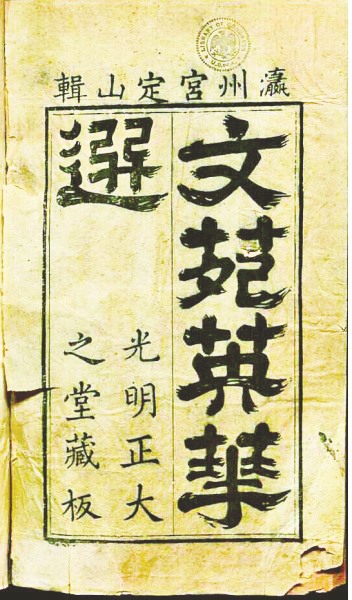 瀛州宮定山輯
文苑英華
選
光明正大
之堂藏板
LIBRARY OF CONGRESS